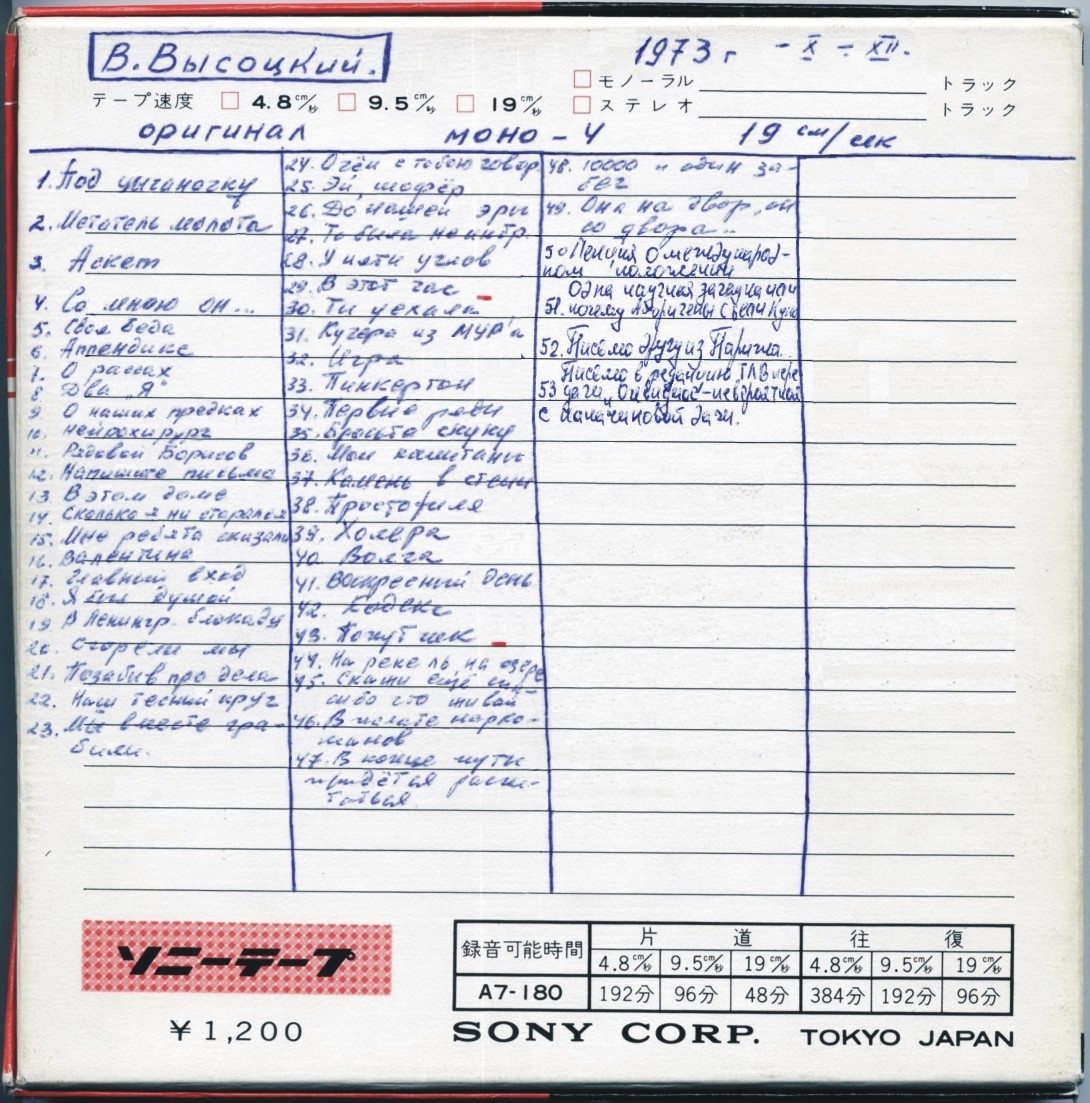 В. Высоцкий.
1973 г - X ÷ XII.
モノーラル トラック
テープ速度 4.8cm/秒 9.5cm/秒 19cm/秒 ステレオ トラック
оригинал моно - 4 19 см/сек
1. Под цыганочку
2. Метатель молота
3. Аскет
4. Со мною он...
5. Своя беда
6. Аппендикс
7. О расах
8 Два „Я"
9. О наших предках
10. Нейрохирург
11. Рядовой Борисов
12. Напишите письма
13. В этом доме
14. Сколько я ни старался
15. Мне ребята сказали
16. Валентина
17. Главный вход
18. Я был душой
19. В Ленингр. блокаду
20. Сгорели мы
21. Позабыв про дела
22. Наш тесный круг
23. Мы вместе гра-
били.
24. О чём с тобою говор.
25. Эй, шофёр
26. До нашей эры
27. То была не интр.
28. У пяти углов
29. В этот час
30. Ты уехала
31. Кучера из МУР'а
32. Игра
33. Пинкертон
34. Первые ряды
35. Бросьте скуку
36. Мои капитаны
37. Камень в степи
38. Простофиля
39. Холера
40. Волга
41. Воскресный день
42. Кодекс
43. Попутчик
44. На реке ль, на озере
45. Скажи ещё спа-
сибо что живой
46. В палате нарко-
манов
47. В конце пути
придётся распи-
48. 10000 и один за-
бег
49. Она на двор, он
со двора..
50 Лекция о международ-
ном положении
Одна научная загадка или
51. почему Аборигены съели Кука
52. Письмо другу из Парижа.
Письмо в редакцию ТЛВ пере
53 дачи „Очевидное-невероятное
с Каначиковой дачи.
ソニーテープ
¥1,200
録音可能時間 片道 往復
4.8cm/秒 9.5cm/秒 19cm/秒 4.8cm/秒 9.5cm/秒 19cm/秒
A7-180 192分 96分 48分 384分 192分 96分
SONY CORP. TOKYO JAPAN